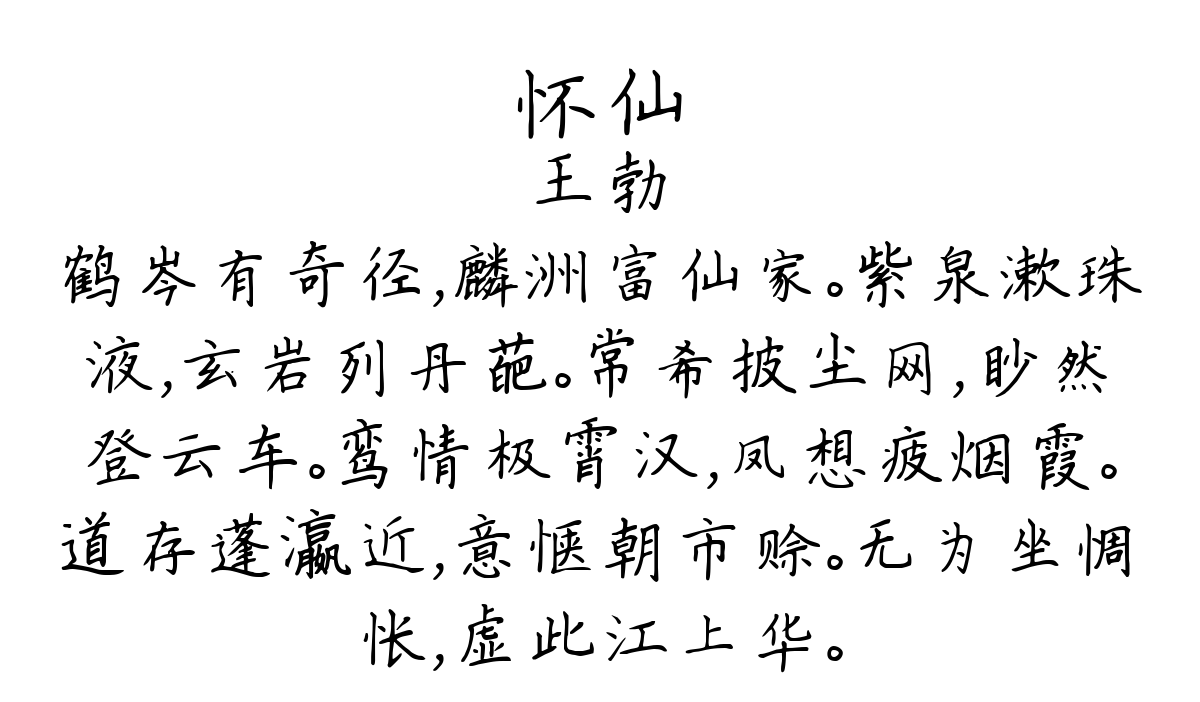 怀仙
王勃
鹤岑有奇径,麟洲富仙家。紫泉漱珠
液,玄岩列丹葩。常希披尘网,眇然
登云车。鸾情极霄汉,凤想疲烟霞。
道存蓬瀛近,意惬朝市赊。无为坐惆
怅,虚此江上华。